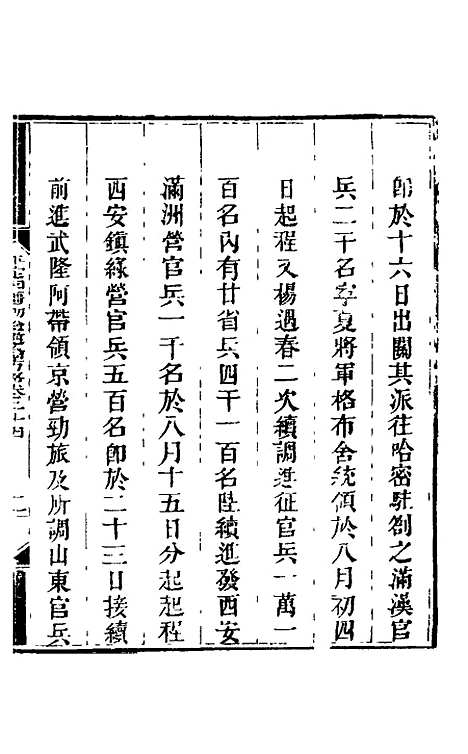 卽於十六日出關其派往哈密駐劄之滿漢官
兵二千名寧夏將軍格布舍統領於八月初四
日起程又楊遇春二次續調進征官兵一萬一
百名內有甘省兵四千一百名陸續進發西安
滿洲營官兵一千名於八月十五日分起起程
西安鎮綠營官兵五百名卽於二十三日接續
前進武隆阿帶領京營勁旅及所調山東官兵